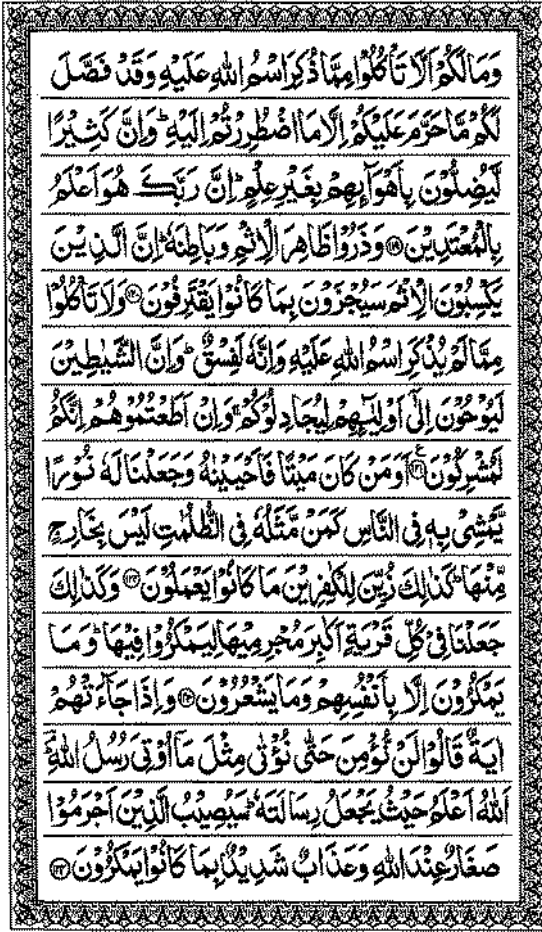 وَمَا لَكُمْ اَلَّا تَاْكُلُوْا مِمَّا ذُكِرَ اسْمُ اللّٰهِ عَلَيْهِ وَقَدْ فَصَّلَ
لَكُمْ مَّا حَرَّمَ عَلَيْكُمْ اِلَّا مَا اضْطُرِرْتُمْ اِلَيْهِ ؕ وَاِنَّ كَثِيْرًا
لَّيُضِلُّوْنَ بِاَهْوَآىِٕهِمْ بِغَيْرِ عِلْمٍ ؕ اِنَّ رَبَّكَ هُوَ اَعْلَمُ
بِالْمُعْتَدِيْنَ ۝۱۱۹ وَذَرُوْا ظَاهِرَ الْاِثْمِ وَبَاطِنَهٗ ؕ اِنَّ الَّذِيْنَ
يَكْسِبُوْنَ الْاِثْمَ سَيُجْزَوْنَ بِمَا كَانُوْا يَقْتَرِفُوْنَ ۝۱۲۰ وَلَا تَاْكُلُوْا
مِمَّا لَمْ يُذْكَرِ اسْمُ اللّٰهِ عَلَيْهِ وَاِنَّهٗ لَفِسْقٌ ؕ وَاِنَّ الشَّيٰطِيْنَ
لَيُوْحُوْنَ اِلٰٓى اَوْلِيٰٓـِٕهِمْ لِيُجَادِلُوْكُمْ ۚ وَاِنْ اَطَعْتُمُوْهُمْ اِنَّكُمْ
لَمُشْرِكُوْنَ ۝۱۲۱ ع اَوَمَنْ كَانَ مَيْتًا فَاَحْيَيْنٰهُ وَجَعَلْنَا لَهٗ نُوْرًا
يَّمْشِيْ بِهٖ فِى النَّاسِ كَمَنْ مَّثَلُهٗ فِى الظُّلُمٰتِ لَيْسَ بِخَارِجٍ
مِّنْهَا ؕ كَذٰلِكَ زُيِّنَ لِلْكٰفِرِيْنَ مَا كَانُوْا يَعْمَلُوْنَ ۝۱۲۲ وَكَذٰلِكَ
جَعَلْنَا فِيْ كُلِّ قَرْيَةٍ اَكٰبِرَ مُجْرِمِيْهَا لِيَمْكُرُوْا فِيْهَا ؕ وَمَا
يَمْكُرُوْنَ اِلَّا بِاَنْفُسِهِمْ وَمَا يَشْعُرُوْنَ ۝۱۲۳ وَاِذَا جَآءَتْهُمْ
اٰيَةٌ قَالُوْا لَنْ نُّؤْمِنَ حَتّٰى نُؤْتٰى مِثْلَ مَآ اُوْتِيَ رُسُلُ اللّٰهِ ؔۘ
اَللّٰهُ اَعْلَمُ حَيْثُ يَجْعَلُ رِسَالَتَهٗ ؕ سَيُصِيْبُ الَّذِيْنَ اَجْرَمُوْا
صَغَارٌ عِنْدَ اللّٰهِ وَعَذَابٌ شَدِيْدٌۢ بِمَا كَانُوْا يَمْكُرُوْنَ ۝۱۲۴